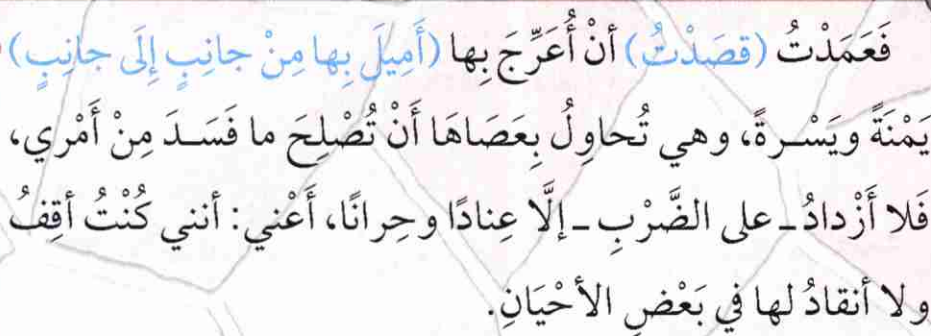 فَعَمَدْتُ (قصَدْتُ) أنْ أُعَرِّجَ بِها (أَمِيلَ بِها مِنْ جانِبٍ إِلَى جانِبٍ)
يَمْنَةً ويَسْـرةً، وهي تُحاوِلُ بِعَصَاهَا أَنْ تُصْلِحَ ما فَسَـدَ مِنْ أَمْري،
فَلا أَزْدادُ ـ على الضَّرْبِ ـ إلَّا عِنادًا وحِرانًا، أَعْني: أنني كُنْتُ أقِفُ
ولا أنقادُ لها في بَعْضِ الأحْيَانِ.